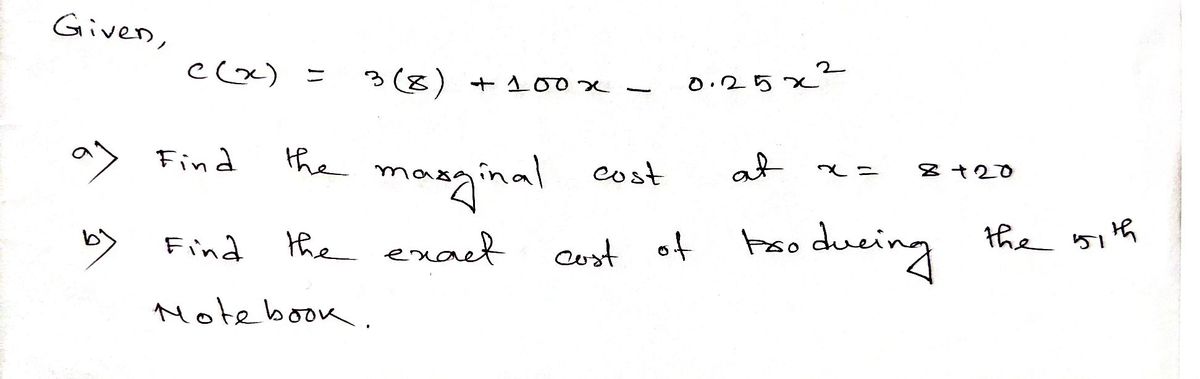 Given,
c(x) = 3(8) + 100x - 0.25x²
a) Find the marginal cost at x = 8+20
b) Find the exact cost of producing the 51th
Notebook.